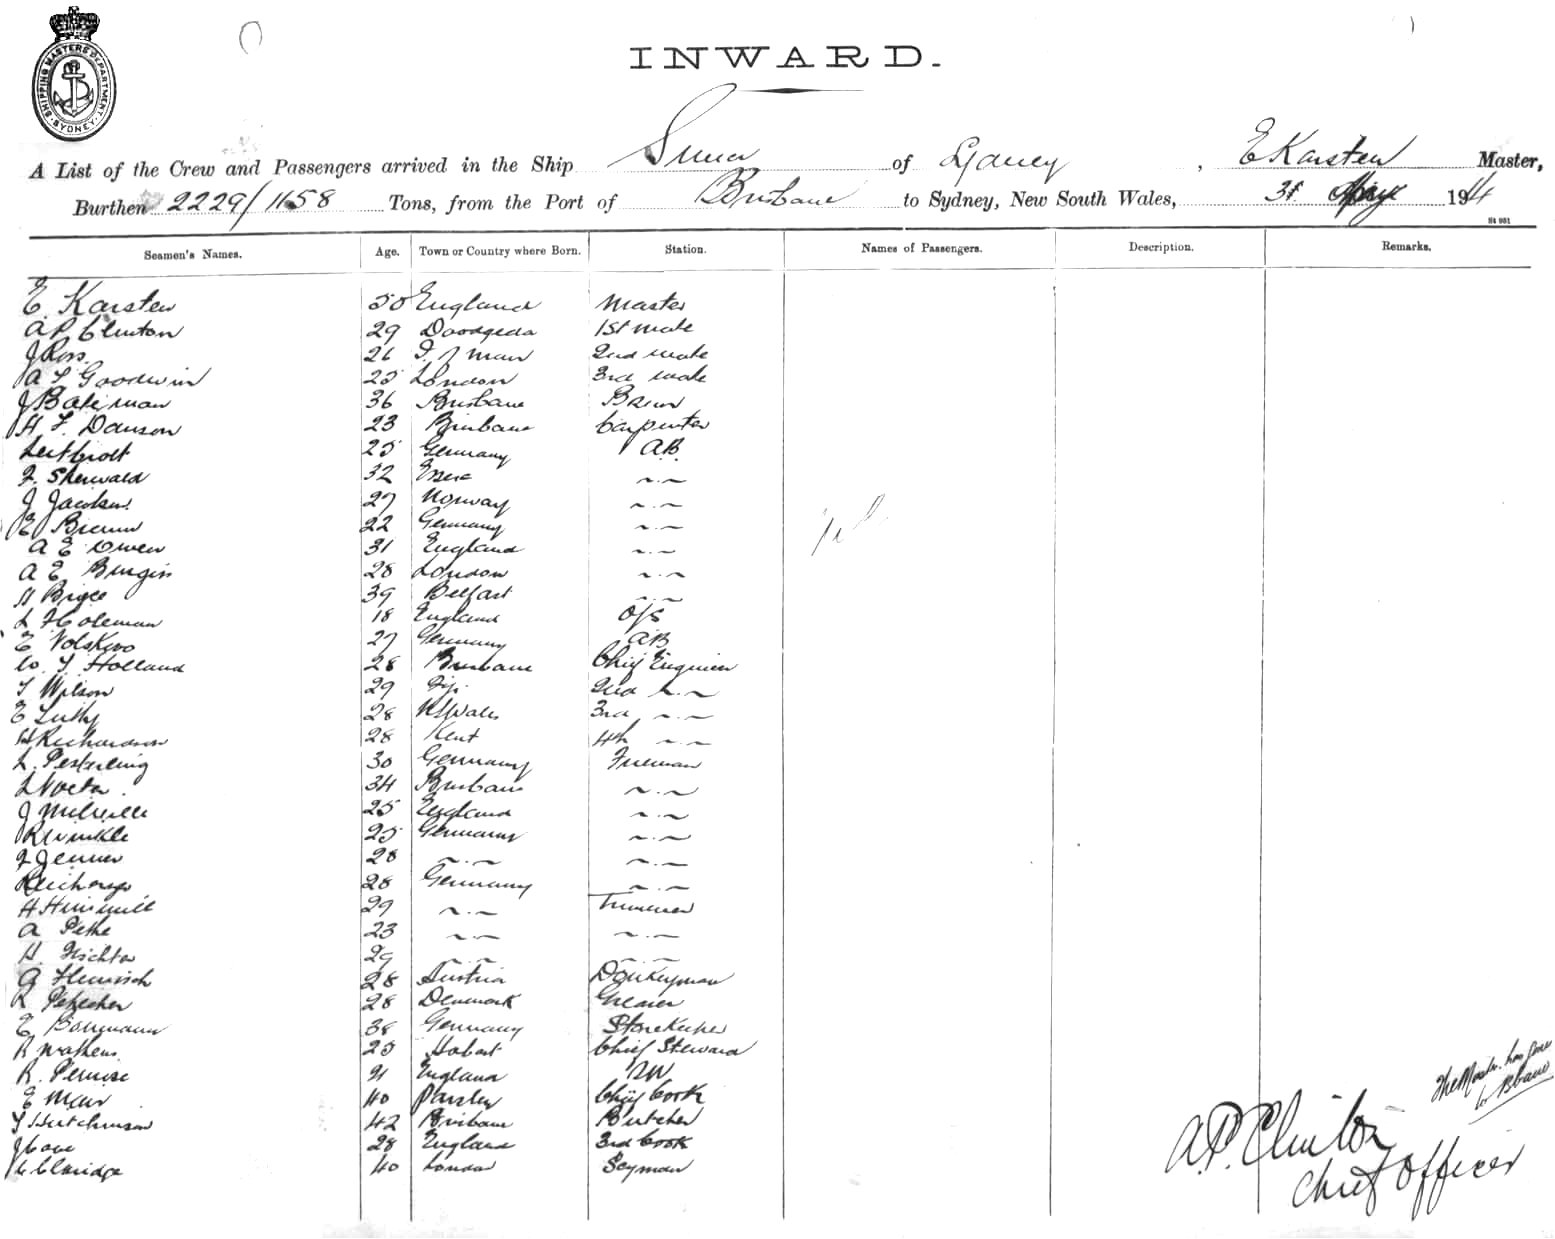 SHIPPING MASTERS DEPARTMENT SYDNEY
INWARD.
A List of the Crew and Passengers arrived in the Ship of Sydney, E Karsten Master,
Burthen 2229/1158 Tons, from the Port of Brisbane to Sydney, New South Wales, 31 1914
St 951
Seamen's Names. Age. Town or Country where Born. Station. Names of Passengers. Description. Remarks.
E. Karsten 50 England Master
A P Clinton 29 1st mate
J Ross 26 I of man 2nd mate
A S Goodwin 25 London 3rd mate
J Bateman 36 Brisbane
H F Dawson 23 Brisbane Carpenter
25 Germany AB.
F. Sherwald 32 ~.~
J Jacobsen 27 Norway ~.~
E Braun 22 Germany ~.~
A E Owen 31 England ~.~
A E Burgin 28 London ~.~
H Brice 39 Belfast ~.~
L Holeman 18 England O/S
E 27 Germany AB
W. T. Holland 28 Brisbane Chief Engineer
T Wilson 29 Fiji 2nd ~.~
E 28 N S Wales 3rd ~.~
H Richardson 28 Kent 4th ~.~
L. Pesterling 30 Germany Fireman
34 Brisbane ~.~
J 25 England ~.~
R Winkle 25 Germany ~.~
F Jenner 28 ~.~ ~.~
28 Germany ~.~
H 29 ~.~ Trimmer
A Pethe 23 ~.~ ~.~
H. 29 ~.~ ~.~
G Heinrich 28 Austria Donkeyman
28 Denmark Greaser
E Bormann 38 Germany Storekeeper
R Mathews 25 Hobart Chief Steward
R. Penrose 21 England 2nd
E Muir 40 Paisley Chief Cook
T Hutchinson 42 Brisbane Butcher
J Cove 28 England 3rd Cook
Claridge 40 London
The Master has gone
to Bbane
A.P. Clinton
Chief Officer